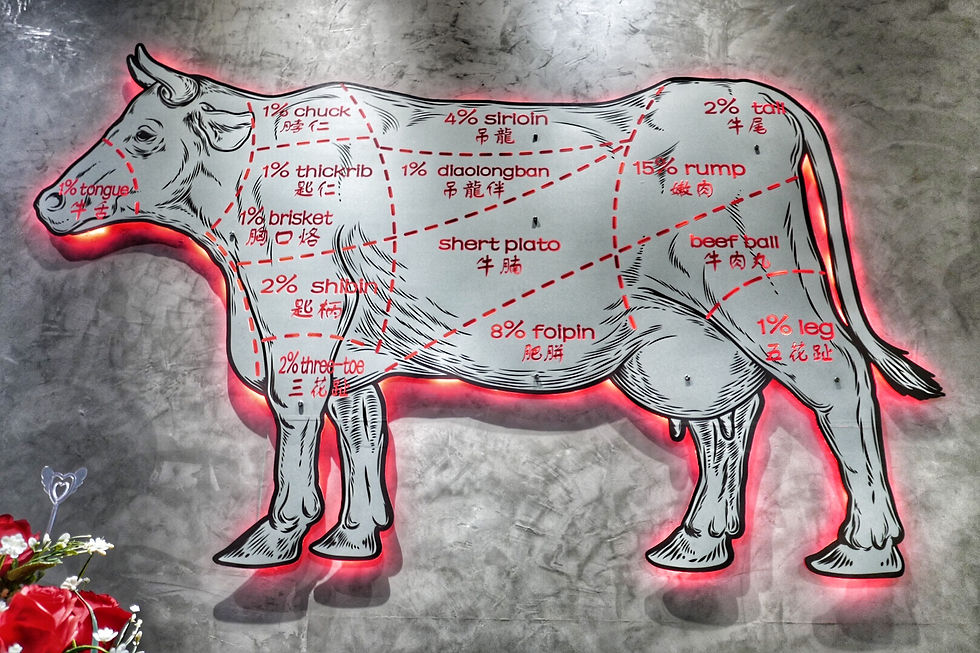 1% chuck
脖仁
4% sirloin
吊龍
2% tail
牛尾
1% tongue
牛舌
1% thickrib
匙仁
1% diaolongban
吊龍伴
15% rump
嫩肉
1% brisket
胸口烙
shert plato
牛腩
beef ball
牛肉丸
2% shibin
匙柄
8% foipin
肥胼
1% leg
五花趾
2% three-toe
三花趾